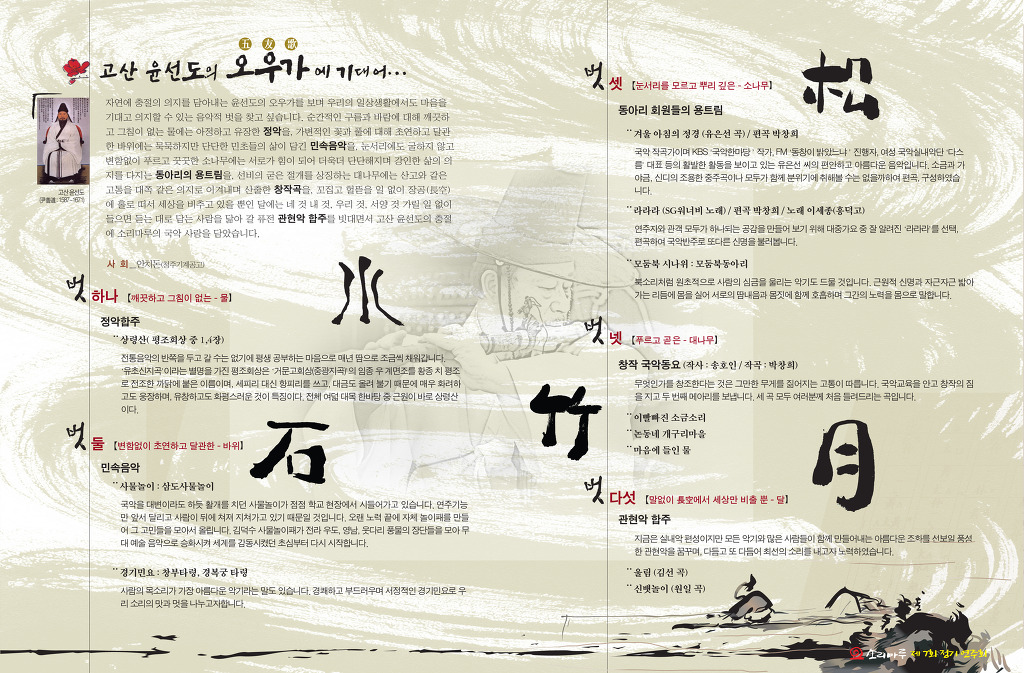 五 友 歌
고산 윤선도의 오우가에 기대어...
자연에 충절의 의지를 담아내는 윤선도의 오우가를 보며 우리의 일상생활에서도 마음을
기대고 의지할 수 있는 음악적 벗을 찾고 싶습니다. 순간적인 구름과 바람에 대해 깨끗하
고 그침이 없는 물에는 아정하고 유장한 정악을, 가변적인 꽃과 풀에 대해 초연하고 달관
한 바위에는 묵묵하지만 단단한 민초들의 삶이 담긴 민속음악을, 눈서리에도 굴하지 않고
변함없이 푸르고 꿋꿋한 소나무에는 서로가 힘이 되어 더욱더 단단해지며 강인한 삶의 의
지를 다지는 동아리의 용트림들을, 선비의 굳은 절개를 상징하는 대나무에는 산고와 같은
고통을 대쪽 같은 의지로 이겨내며 산출한 창작곡을, 꼬집고 헐뜯을 일 없이 장공(長空)
에 홀로 떠서 세상을 비추고 있을 뿐인 달에는 네 것 내 것, 우리 것, 서양 것 가릴 일 없이
들으면 듣는 대로 담는 사람을 닮아 갈 퓨전 관현악 합주를 빗대면서 고산 윤선도의 충절
에 소리마루의 국악 사랑을 담았습니다.
고산 윤선도
(尹善道 : 1587~1671)
사 회_안치돈(청주기계공고)
水
벗 하나 【깨끗하고 그침이 없는 - 물】
정악합주
¨상령산( 평조회상 중 1,4장)
전통음악의 반쪽을 두고 갈 수는 없기에 평생 공부하는 마음으로 매년 땀으로 조금씩 채워갑니다.
'유초신지곡'이라는 별명을 가진 평조회상은 '거문고회상(중광지곡)'의 임종 우 계면조를 황종 치 평조
로 전조한 까닭에 붙은 이름이며, 세피리 대신 향피리를 쓰고, 대금도 올려 불기 때문에 매우 화려하
고도 웅장하며, 유창하고도 화평스러운 것이 특징이다. 전체 여덟 대목 한바탕 중 근원이 바로 상령산
이다.
石
벗 둘 【변함없이 초연하고 달관한 - 바위】
민속음악
¨사물놀이 : 삼도사물놀이
국악을 대변이라도 하듯 활개를 치던 사물놀이가 점점 학교 현장에서 시들어가고 있습니다. 연주기능
만 앞서 달리고 사람이 뒤에 쳐져 지쳐가고 있기 때문일 것입니다. 오랜 노력 끝에 자체 놀이패를 만들
어 그 고민들을 모아서 올립니다. 김덕수 사물놀이패가 전라 우도, 영남, 웃다리 풍물의 장단들을 모아 무
대 예술 음악으로 승화시켜 세계를 감동시켰던 초심부터 다시 시작합니다.
¨경기민요 : 창부타령, 경복궁 타령
사람의 목소리가 가장 아름다운 악기라는 말도 있습니다. 경쾌하고 부드러우며 서정적인 경기민요로 우
리 소리의 맛과 멋을 나누고자합니다.
松
벗 셋 【눈서리를 모르고 뿌리 깊은 - 소나무】
동아리 회원들의 용트림
¨겨울 아침의 정경 (유은선 곡) / 편곡 박창희
국악 작곡가이며 KBS '국악한마당' 작가, FM '동창이 밝았느냐' 진행자, 여성 국악실내악단 '다스
름' 대표 등의 활발한 활동을 보이고 있는 유은선 씨의 편안하고 아름다운 음악입니다. 소금과 가
야금, 신디의 조용한 중주곡이나 모두가 함께 분위기에 취해볼 수는 없을까하여 편곡, 구성하였습
니다.
¨라라라 (SG워너비 노래) / 편곡 박창희 / 노래 이세종(흥덕고)
연주자와 관객 모두가 하나되는 공감을 만들어 보기 위해 대중가요 중 잘 알려진 '라라라'를 선택,
편곡하여 국악반주로 또다른 신명을 불러봅니다.
¨모둠북 시나위 : 모둠북동아리
북소리처럼 원초적으로 사람의 심금을 울리는 악기도 드물 것입니다. 근원적 신명과 지근지근 밟아
가는 리듬에 몸을 실어 서로의 땀내음과 몸짓에 함께 호흡하며 그간의 노력을 몸으로 말합니다.
竹
벗 넷 【푸르고 곧은 - 대나무】
창작 국악동요 (작사 : 송호인 / 작곡 : 박창희)
무엇인가를 창조한다는 것은 그만한 무게를 짊어지는 고통이 따릅니다. 국악교육을 안고 창작의 짐
을 지고 두 번째 메아리를 보냅니다. 세 곡 모두 여러분께 처음 들려드리는 곡입니다.
¨이빨빠진 소금소리
¨논동네 개구리마을
¨마음에 들인 물
月
벗 다섯 【말없이 長空에서 세상만 비출 뿐 - 달】
관현악 합주
지금은 실내악 편성이지만 모든 악기와 많은 사람들이 함께 만들어내는 아름다운 조화를 선보일 풍성
한 관현악을 꿈꾸며, 다듬고 또 다듬어 최선의 소리를 내고자 노력하였습니다.
¨울림 (김선 곡)
¨신뱃놀이 (원일 곡)
소리마루 제7회 정기연주회